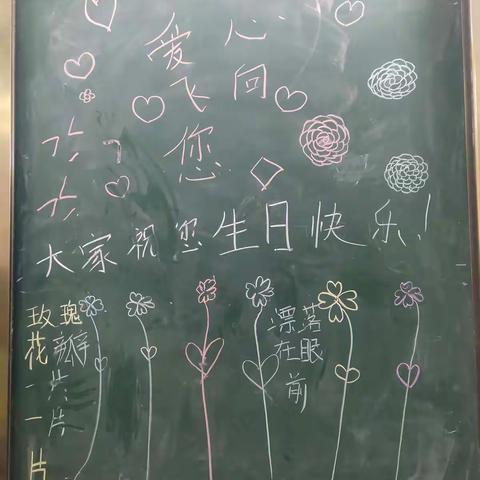 爱心
飞向
您
大家祝您生日快乐!
玫瑰
花瓣
一片
一片
漂落
在眼
前